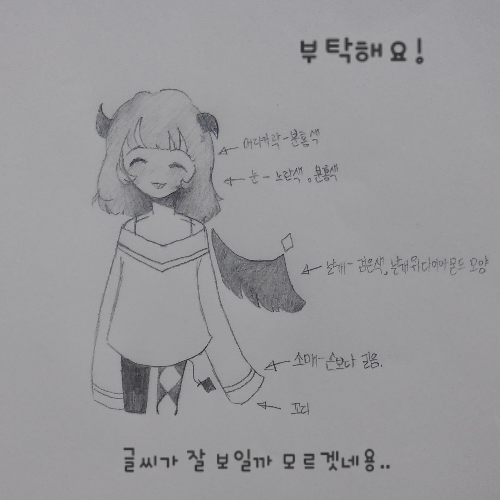 부탁해요!
머리카락-분홍색
눈-노란색, 분홍색
날개-검은색, 날개위 다이아몬드 모양
소매-손보다 긺음.
꼬리
글씨가 잘 보일까 모르겟네용..